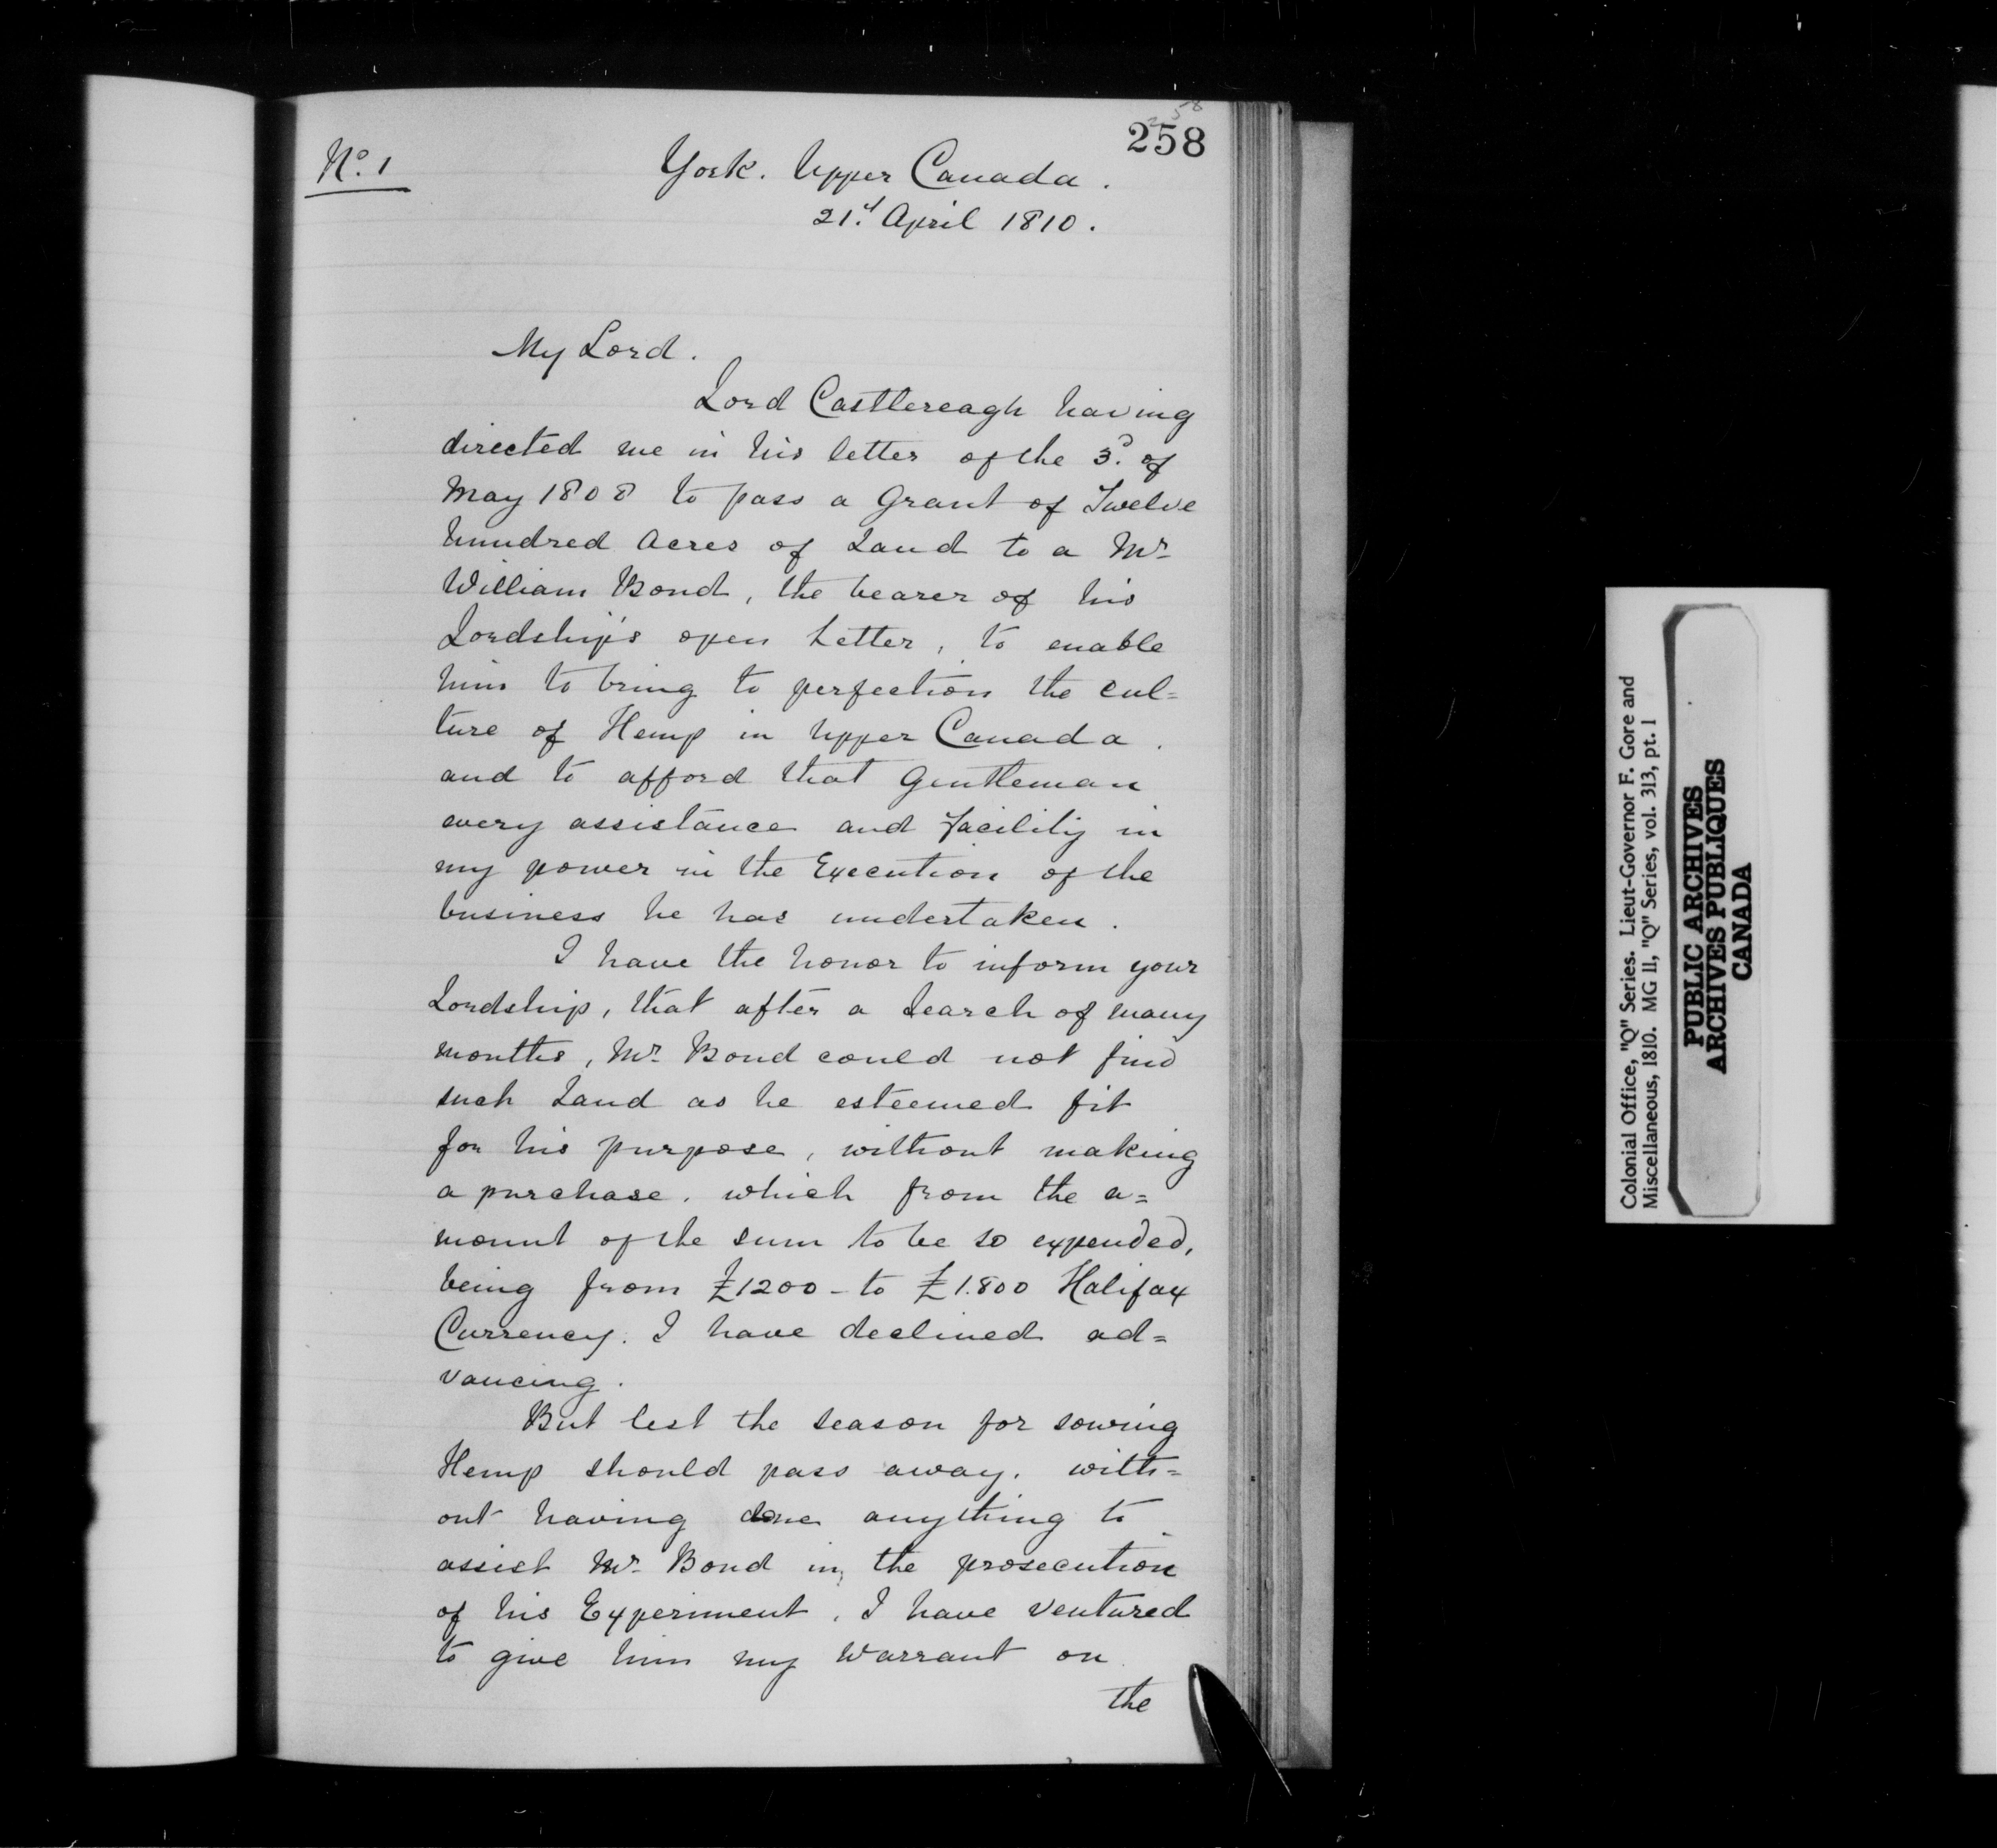 258
258
No. 1
York. Upper Canada.
21st April 1810.
My Lord.
Lord Castlereagh having
directed me in his letter of the 3d. of
May 1808 to pass a Grant of Twelve
hundred Acres of Land to a Mr
William Bond, the bearer of his
Lordship's open Letter, to enable
him to bring to perfection the cul=
ture of Hemp in Upper Canada.
and to afford that Gentleman
every assistance and facility in
my power in the Execution of the
business he has undertaken.
I have the honor to inform your
Lordship, that after a Search of many
months, Mr Bond could not find
such Land as he esteemed fit
for his purpose, without making
a purchase. which from the a=
mount of the sum to be so expended,
being from £1200 - to £1.800 Halifax
Currency. I have declined ad=
vancing.
But lest the season for sowing
Hemp should pass away, with=
out having done anything to
assist Mr Bond in the prosecution
of his Experiment, I have ventured
to give him my Warrant on
the
Colonial Office, "Q" Series. Lieut-Governor F. Gore and
Miscellaneous, 1810. MG 11, "Q" Series, vol. 313, pt. 1
PUBLIC ARCHIVES
ARCHIVES PUBLIQUES
CANADA